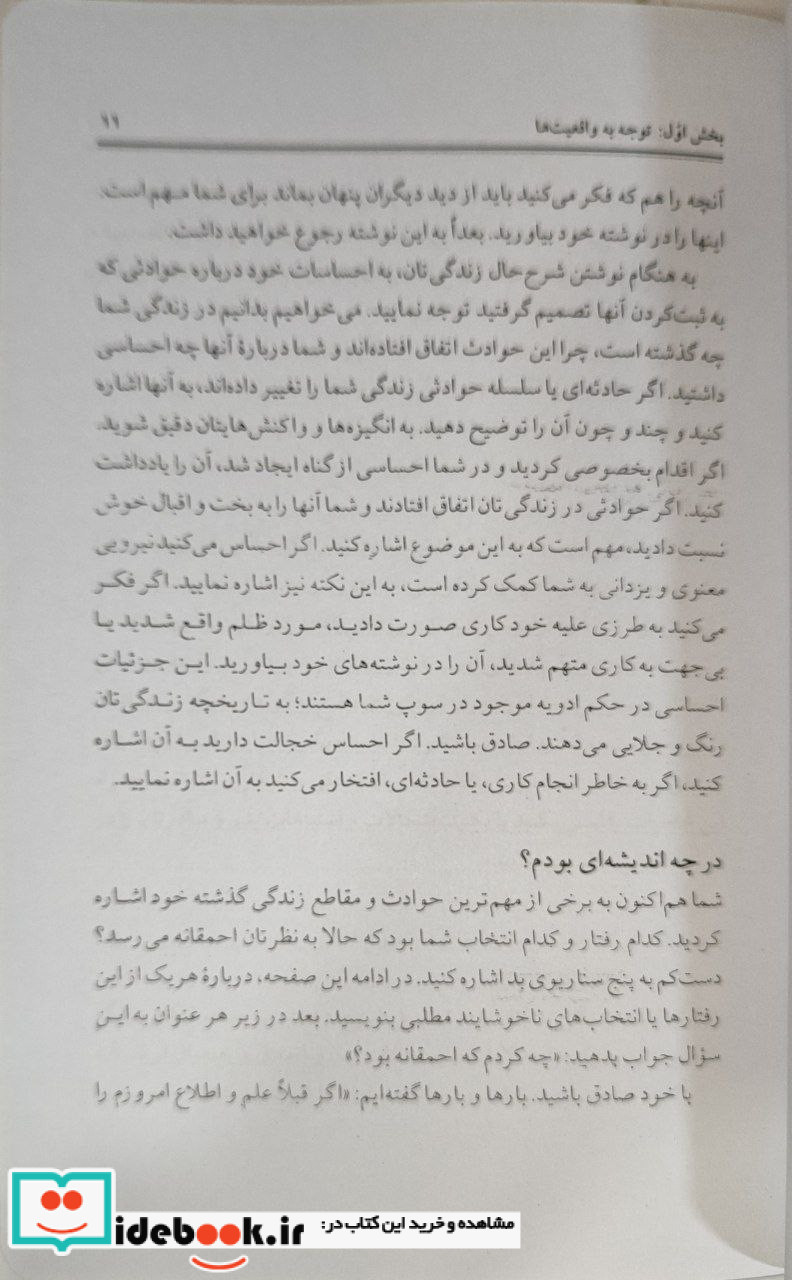 بخش اوّل: توجه به واقعیت‌ها ۱۱
آنچه را هم که فکر می‌کنید باید از دید دیگران پنهان بماند برای شما مهم است.
اینها را در نوشته خود بیاورید. بعداً به این نوشته رجوع خواهید داشت.
به هنگام نوشتن شرح‌حال زندگی‌تان، به احساسات خود درباره حوادثی که
به ثبت‌کردن آنها تصمیم گرفتید توجه نمایید. می‌خواهیم بدانیم در زندگی شما
چه گذشته است، چرا این حوادث اتفاق افتاده‌اند و شما دربارهٔ آنها چه احساسی
داشتید. اگر حادثه‌ای یا سلسله حوادثی زندگی شما را تغییر داده‌اند، به آنها اشاره
کنید و چند و چون آن را توضیح دهید. به انگیزه‌ها و واکنش‌هایتان دقیق شوید.
اگر اقدام بخصوصی کردید و در شما احساسی از گناه ایجاد شد، آن را یادداشت
کنید. اگر حوادثی در زندگی‌تان اتفاق افتادند و شما آنها را به بخت و اقبال خوش
نسبت دادید، مهم است که به این موضوع اشاره کنید. اگر احساس می‌کنید نیرویی
معنوی و یزدانی به شما کمک کرده است، به این نکته نیز اشاره نمایید. اگر فکر
می‌کنید به طرزی علیه خود کاری صورت دادید، مورد ظلم واقع شدید یا
بی‌جهت به کاری متهم شدید، آن را در نوشته‌های خود بیاورید. این جزئیات
احساسی در حکم ادویه موجود در سوپ شما هستند؛ به تاریخچه زندگی‌تان
رنگ و جلایی می‌دهند. صادق باشید. اگر احساس خجالت دارید به آن اشاره
کنید، اگر به خاطر انجام کاری، یا حادثه‌ای، افتخار می‌کنید به آن اشاره نمایید.
در چه اندیشه‌ای بودم؟
شما هم‌اکنون به برخی از مهم‌ترین حوادث و مقاطع زندگی گذشته خود اشاره
کردید. کدام رفتار و کدام انتخاب شما بود که حالا به نظرتان احمقانه می‌رسد؟
دست‌کم به پنج سناریوی بد اشاره کنید. در ادامه این صفحه، دربارهٔ هریک از این
رفتارها یا انتخاب‌های ناخوشایند مطلبی بنویسید. بعد در زیر هر عنوان به این
سؤال جواب بدهید: «چه کردم که احمقانه بود؟»
با خود صادق باشید. بارها و بارها گفته‌ایم: «اگر قبلاً علم و اطلاع امروزم را
idebook.ir مشاهده و خرید این کتاب در: